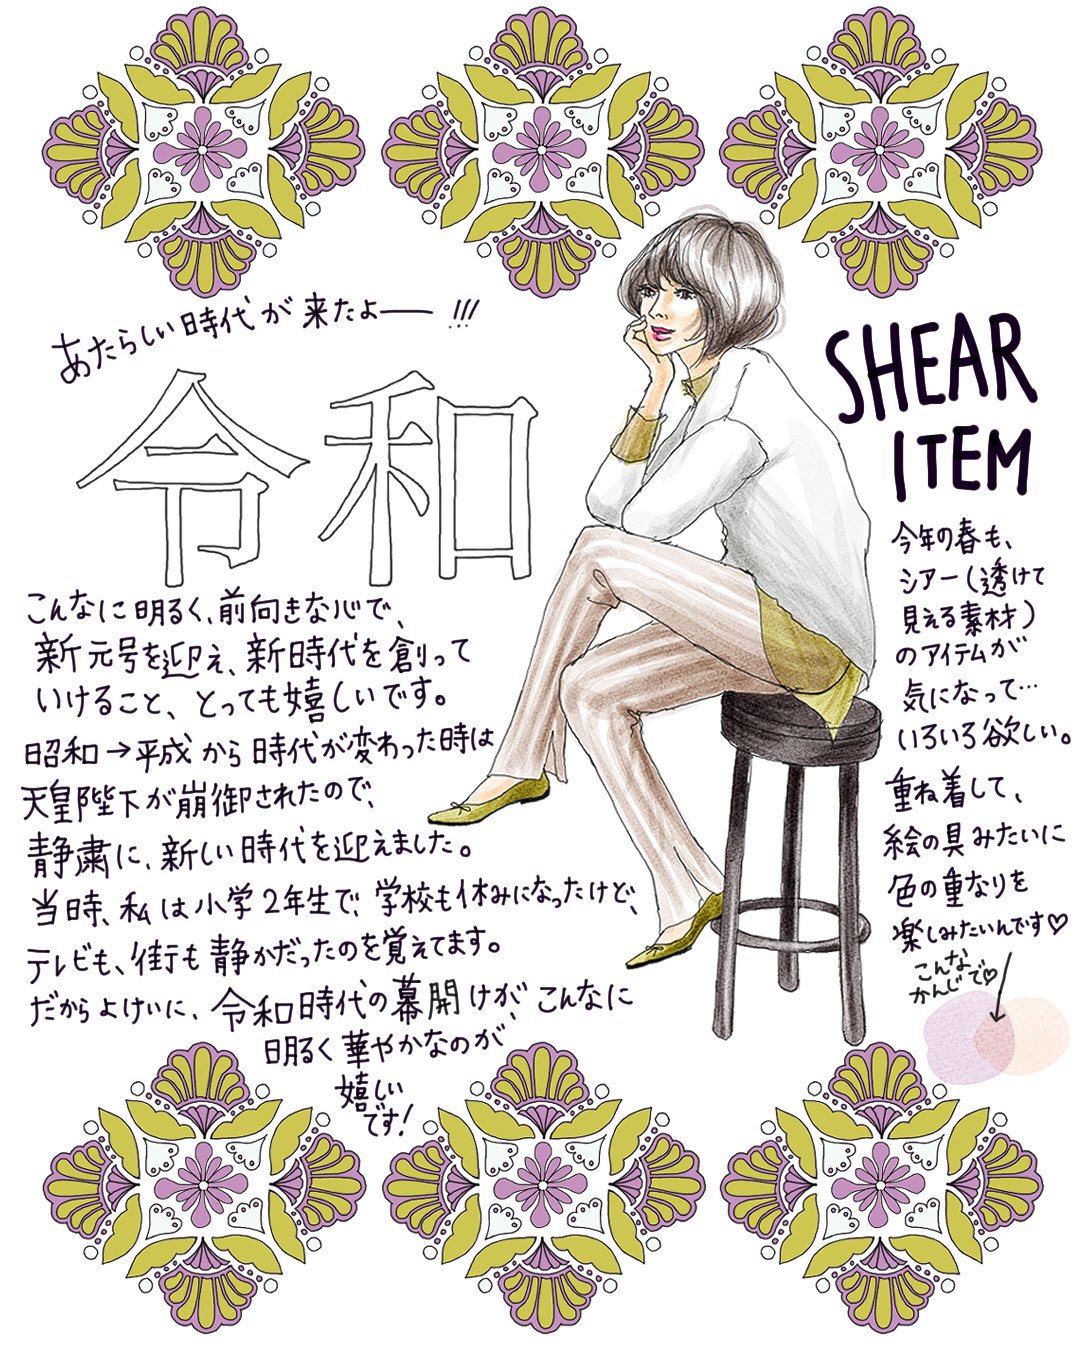 あたらしい時代が来たよー!!!
令和
こんなに明るく、前向きな心で、
新元号を迎え、新時代を創って
いけること、とっても嬉しいです。
昭和→平成から時代が変わった時は
天皇陛下が崩御されたので、
静粛に、新しい時代を迎えました。
当時、私は小学2年生で、学校も休みになったけど、
テレビも、街も静かだったのを覚えてます。
だからよけいに、令和時代の幕開けが、こんなに
明るく華やかなのが
嬉しい
です!
SHEAR
ITEM
今年の春も、
シアー(透けて
見える素材)
のアイテムが
気になって…
いろいろ欲しい。
重ね着して、
絵の具みたいに
色の重なりを
楽しみたいんです♡
こんな
かんじで♡